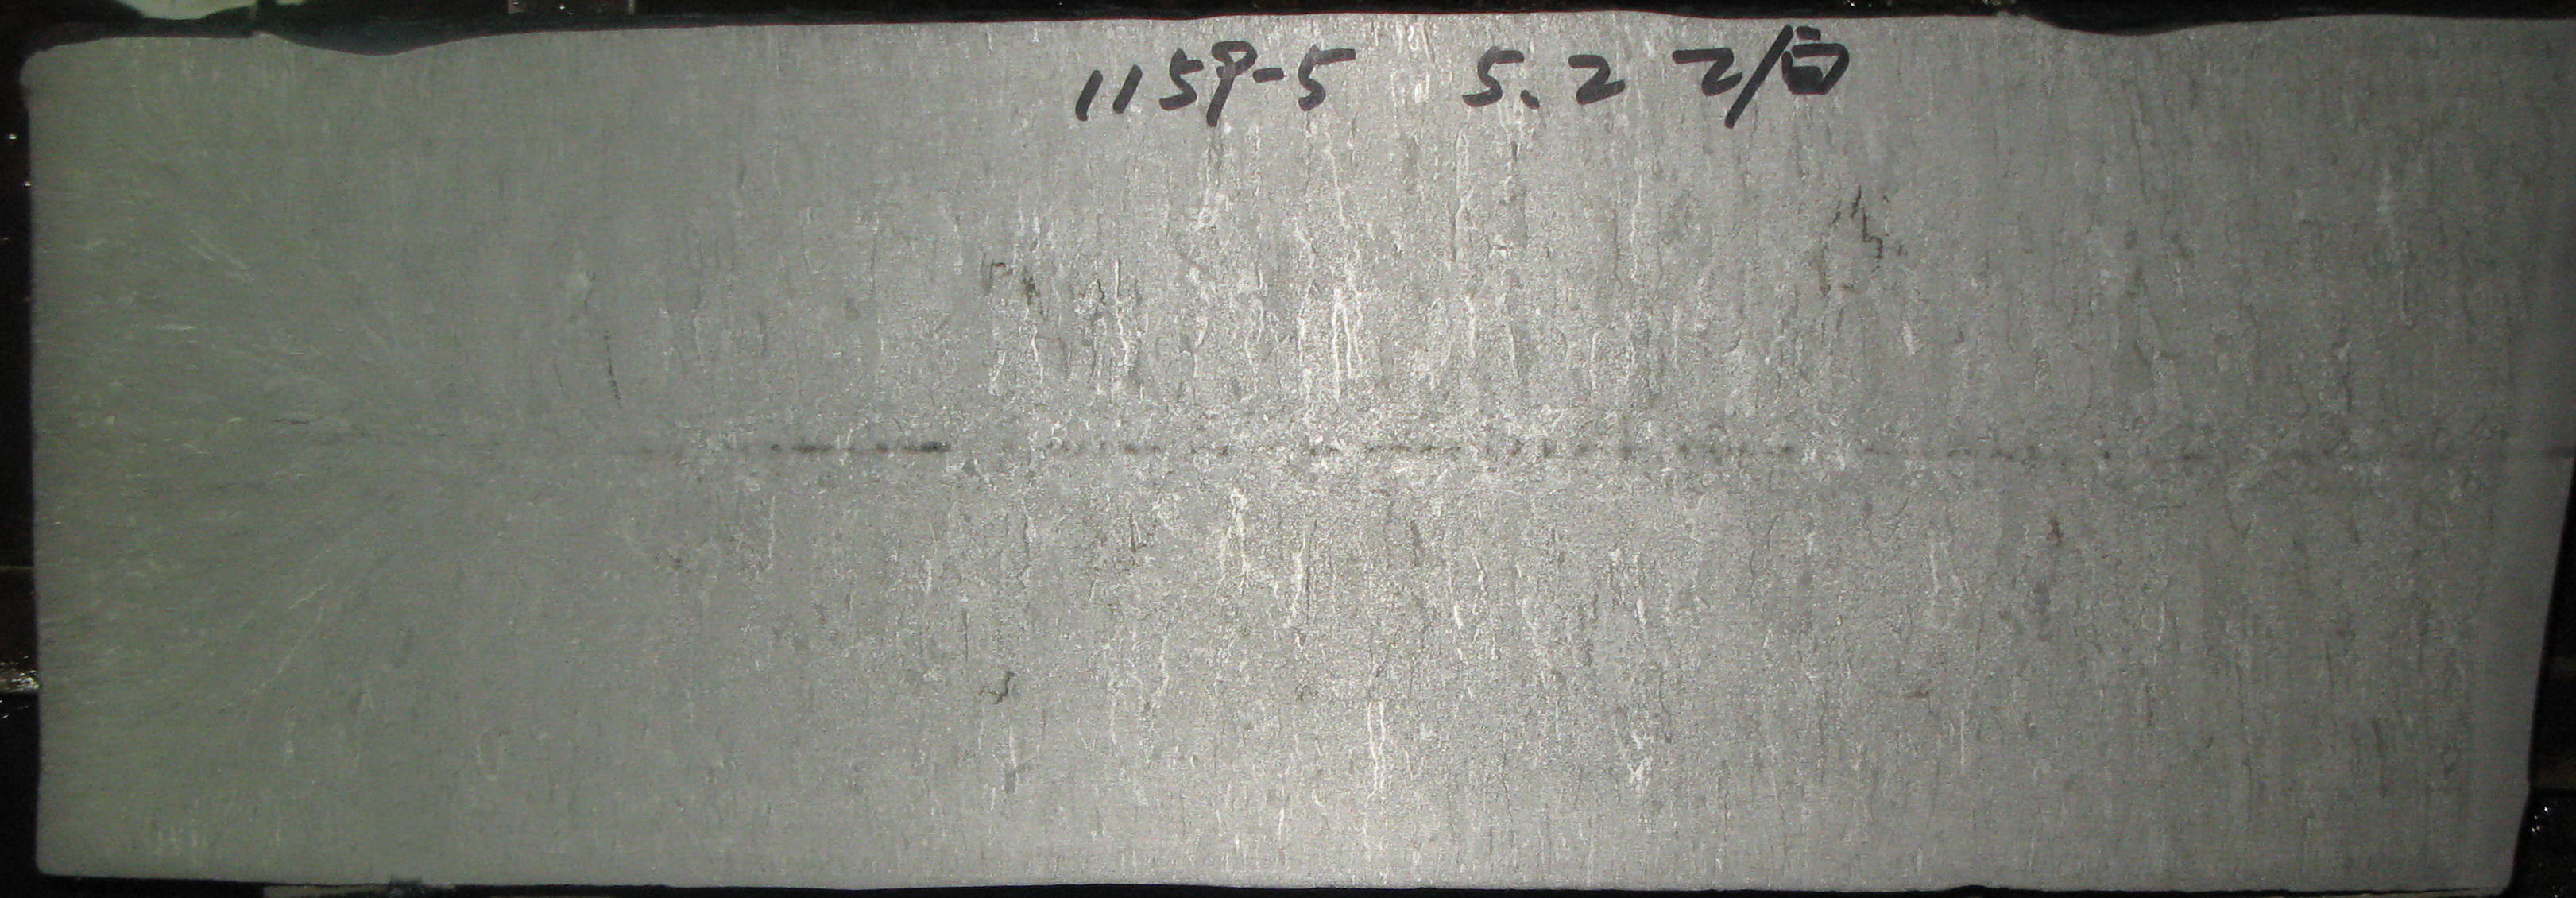 1159-5 5.2 乙/白